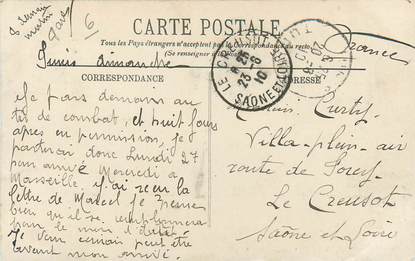 à demain
matin
CARTE POSTALE
Tous les Pays étrangers n'acceptent pas la Correspondance au recto
(Se renseigner à la
France
Tunis dimanche
CORRESPONDANCE
ADRESSE
LE CREUSOT
SAONE-ET-LOIRE
23 -8
10
Je pars demain au
tir de combat, et huit jours
après en permission, je
partirai donc Lundi 27
pour arrivé Mercredi a
Marseille. J'ai reçu la
lettre de Marcel je pense
bien qu'il se
pour le mois d'
Je vous peut être
avant mon arrivé.
Curty
Villa-plein-air
route de
Le Creusot
Saône et Loire